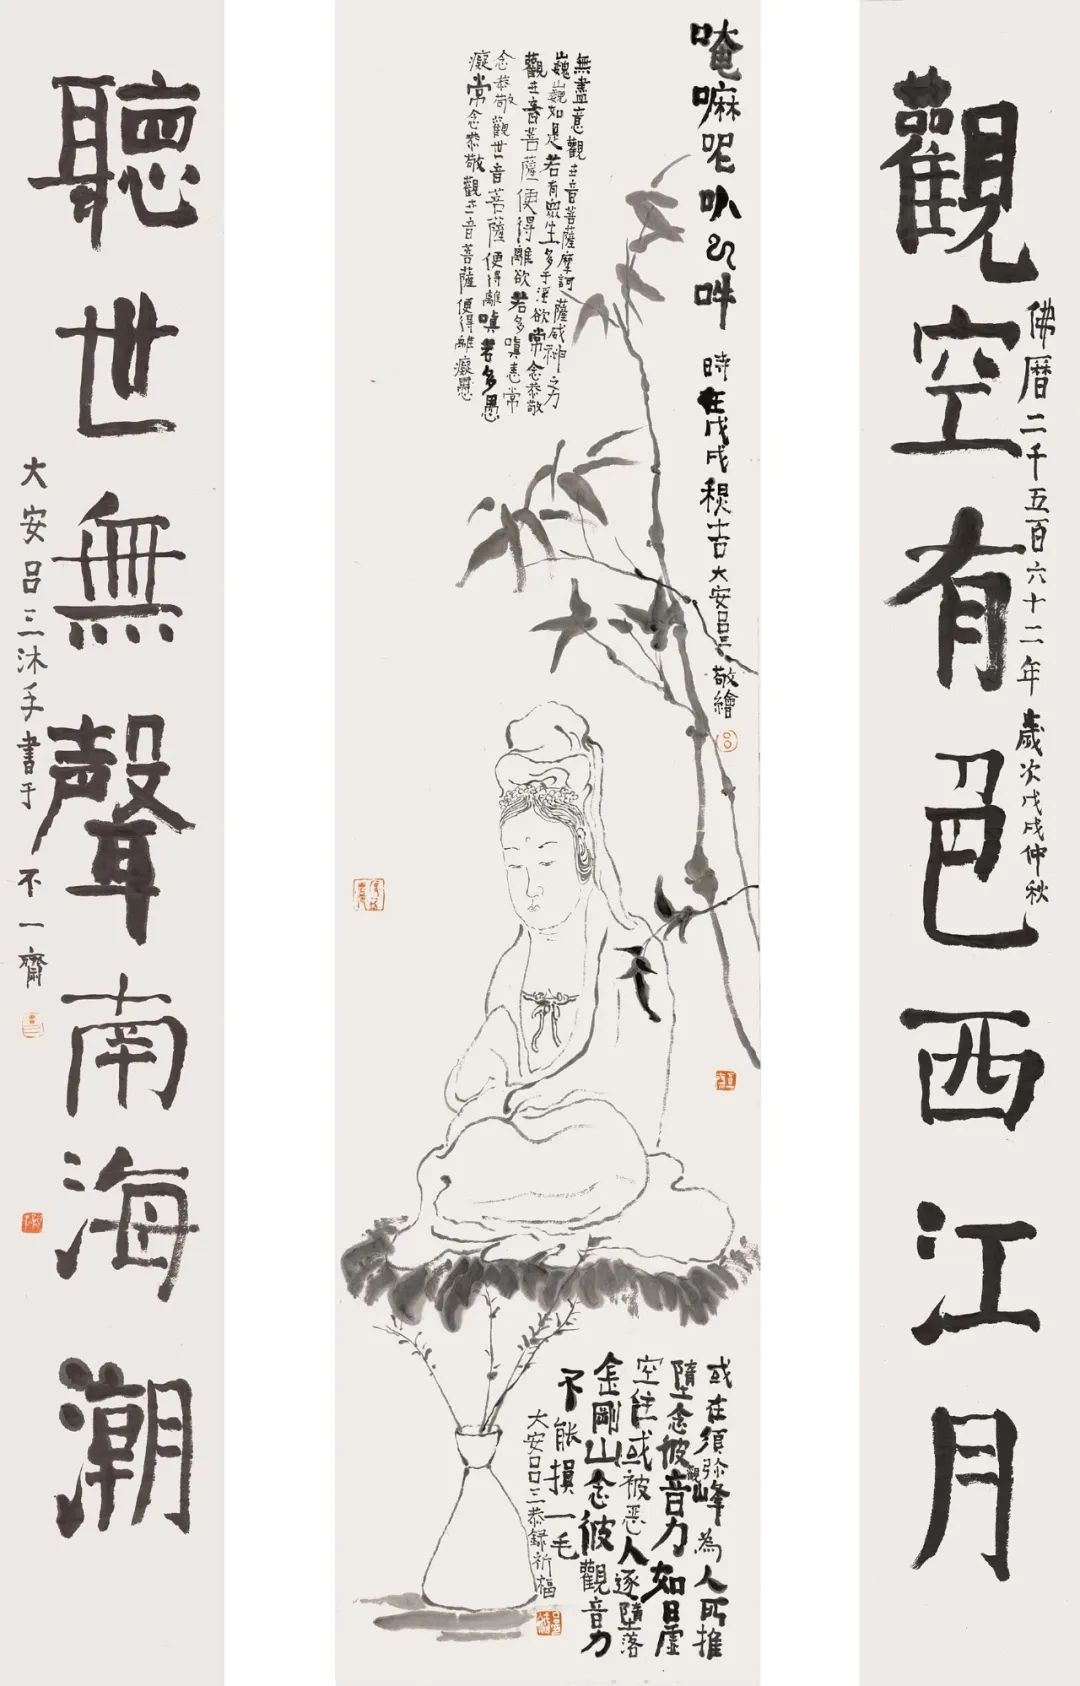 觀空有色西江月
佛曆二千五百六十二年歲次戊戌仲秋
唵嘛呢叭吽
時在戊戌穐吉大安吕三敬繪
無盡意觀世音菩薩摩訶薩威神之力
巍巍如是若有眾生多于淫欲常念恭敬
觀世音菩薩便得離欲若多嗔恚常
念恭敬觀世音菩薩便得離嗔若多愚
癡常念恭敬觀世音菩薩便得離癡
或在須弥峰為人所推
墮念彼觀音力如日虛
空住或被恶人逐墮落
金剛山念彼觀音力
不能損一毛
大安吕三恭録祈福
聽世無聲南海潮
大安吕三沐手書于不一齋